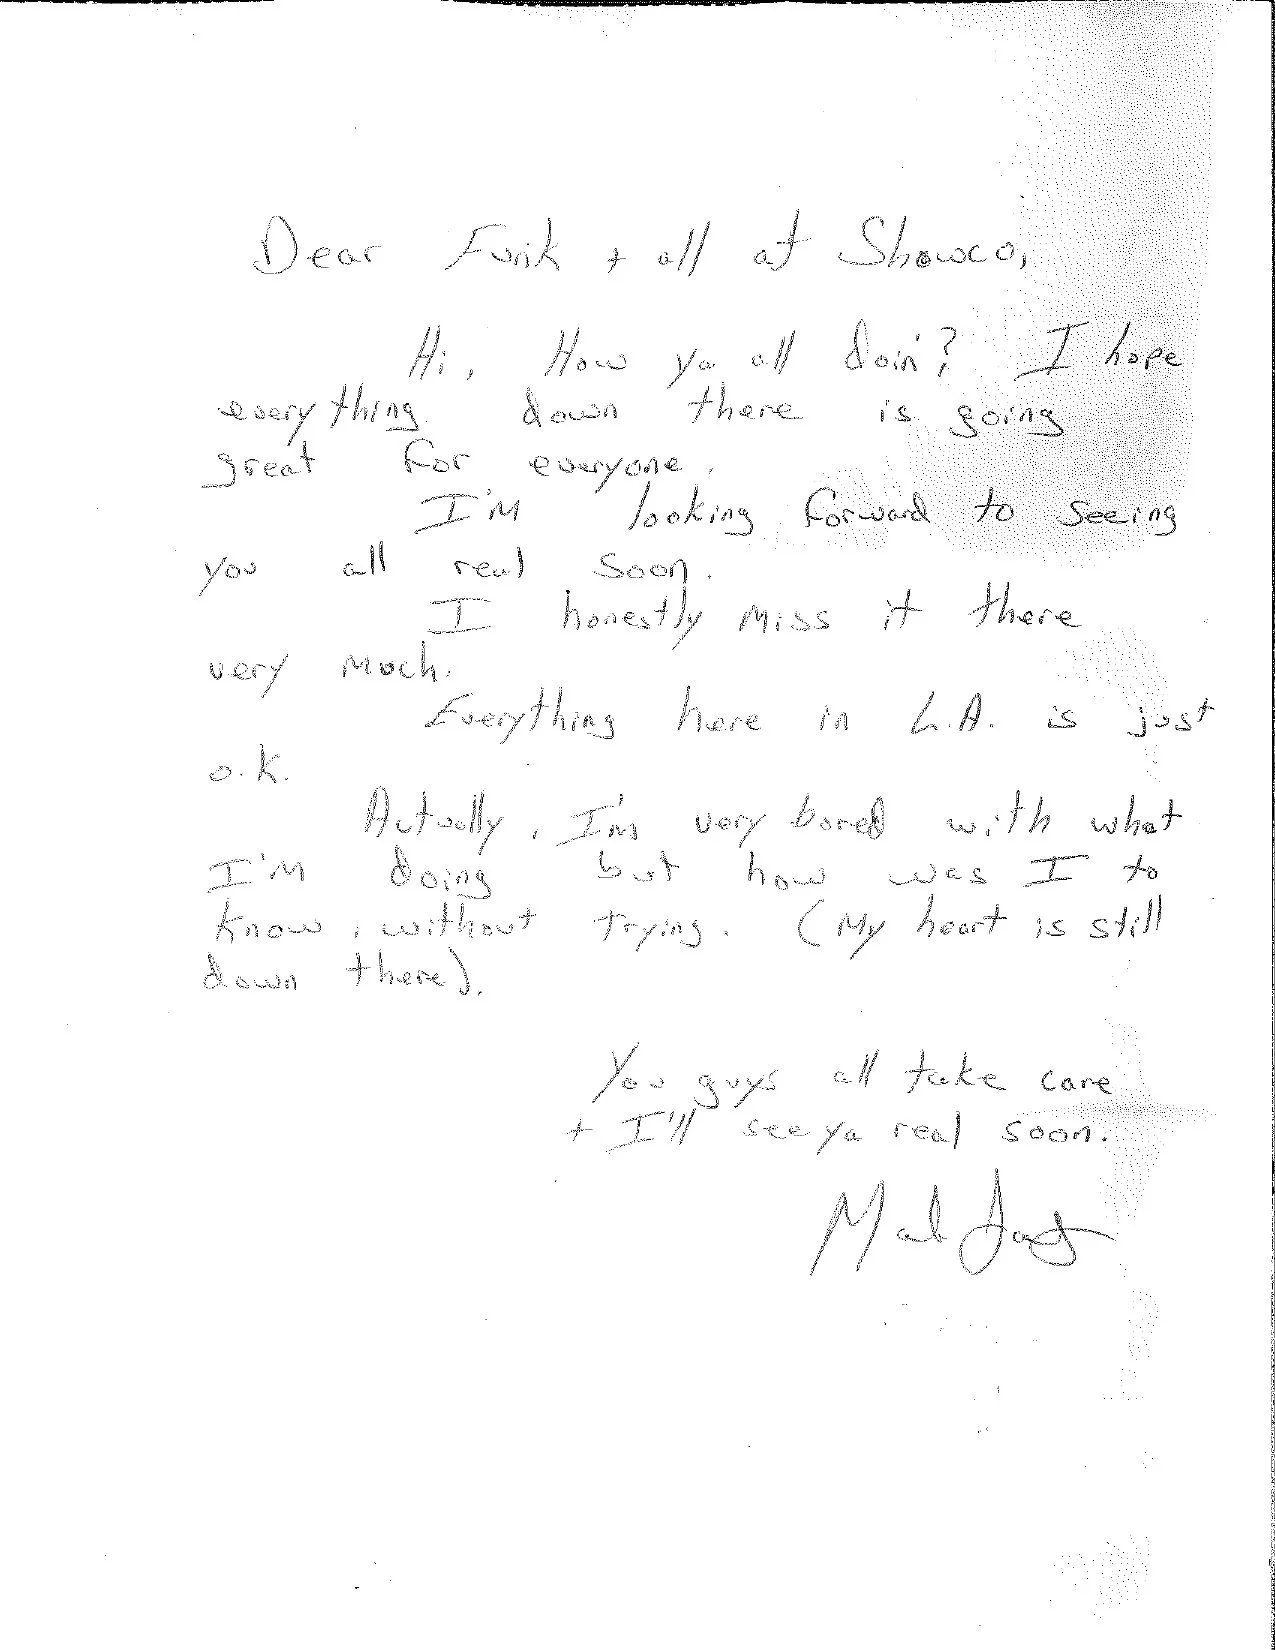 Dear Funk + all at Showco,
Hi, How ya all doin'? I hope
everything down there is going
great for everyone.
I'm looking forward to seeing
you all real soon.
I honestly miss it there
very much.
Everything here in L.A. is just
o.k.
Actually, I'm very bored with what
I'm doing but how was I to
know, without trying. (My heart is still
down there).
You guys all take care
+ I'll see ya real soon.